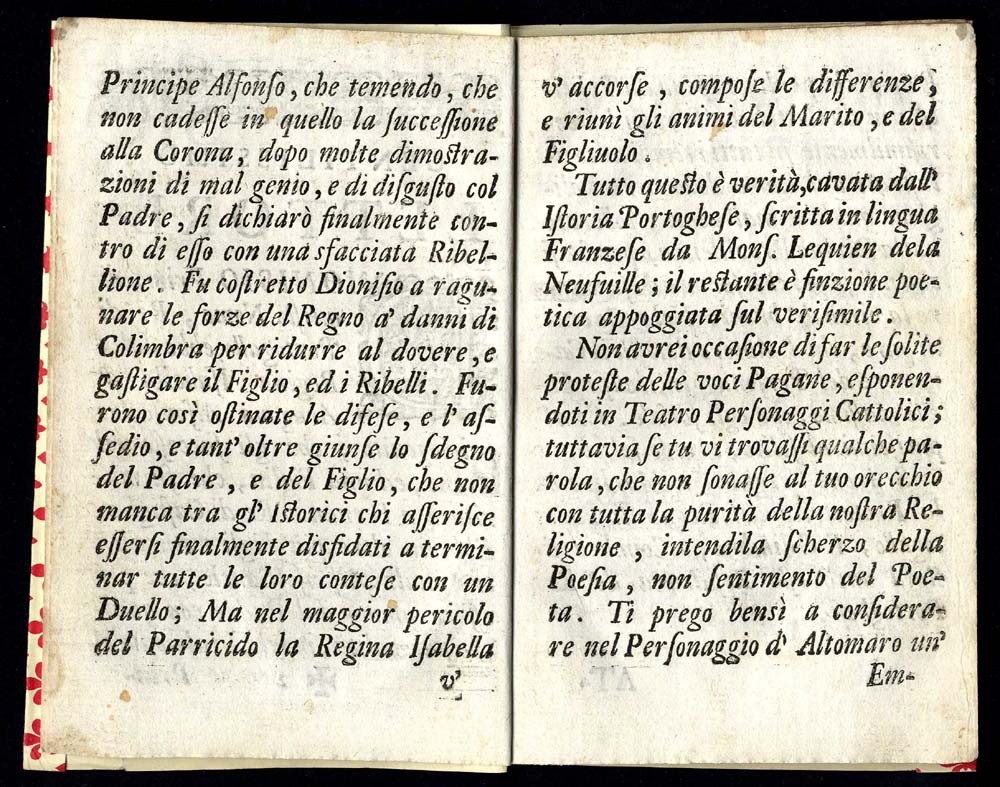 Principe Alfonſo, che temendo, che
non cadeſſe in quello la ſucceſſione
alla Corona, dopo molte dimostra-
zioni di mal genio, e di diſguſto col
Padre, ſi dichiarò finalmente con-
tro di eſſo con una sfacciata Ribel-
lione. Fu coſtretto Dioniſio a ragu-
nare le forze del Regno a' danni di
Colimbra per ridurre al dovere, e
gaſtigare il Figlio, ed i Ribelli. Fu-
rono così oſtinate le difeſe, e l' aſ-
ſedio, e tant' oltre giunſe lo ſdegno
del Padre, e del Figlio, che non
manca tra gl' Istorici chi aſſeriſce
eſſerſi finalmente disfidati a termi-
nar tutte le loro conteſe con un
Duello; Ma nel maggior pericolo
del Parricido la Regina Iſabella
v'
v' accorſe, compoſe le differenze,
e riunì gli animi del Marito, e del
Figliuolo.
Tutto questo è verità, cavata dall'
Iſtoria Portogheſe, ſcritta in lingua
Franzeſe da Monſ. Lequien dela
Neufuille; il restante è finzione poe-
tica appoggiata ſul veriſimile.
Non avrei occaſione di far le ſolite
proteſte delle voci Pagane, eſponen-
doti in Teatro Perſonaggi Cattolici;
tuttavia ſe tu vi trovaſſi qualche pa-
rola, che non ſonaſſe al tuo orecchio
con tutta la purità della noſtra Re-
ligione, intendila ſcherzo della
Poeſia, non ſentimento del Poe-
ta. Ti prego bensì a conſidera-
re nel Perſonaggio d' Altomaro un'
Em-